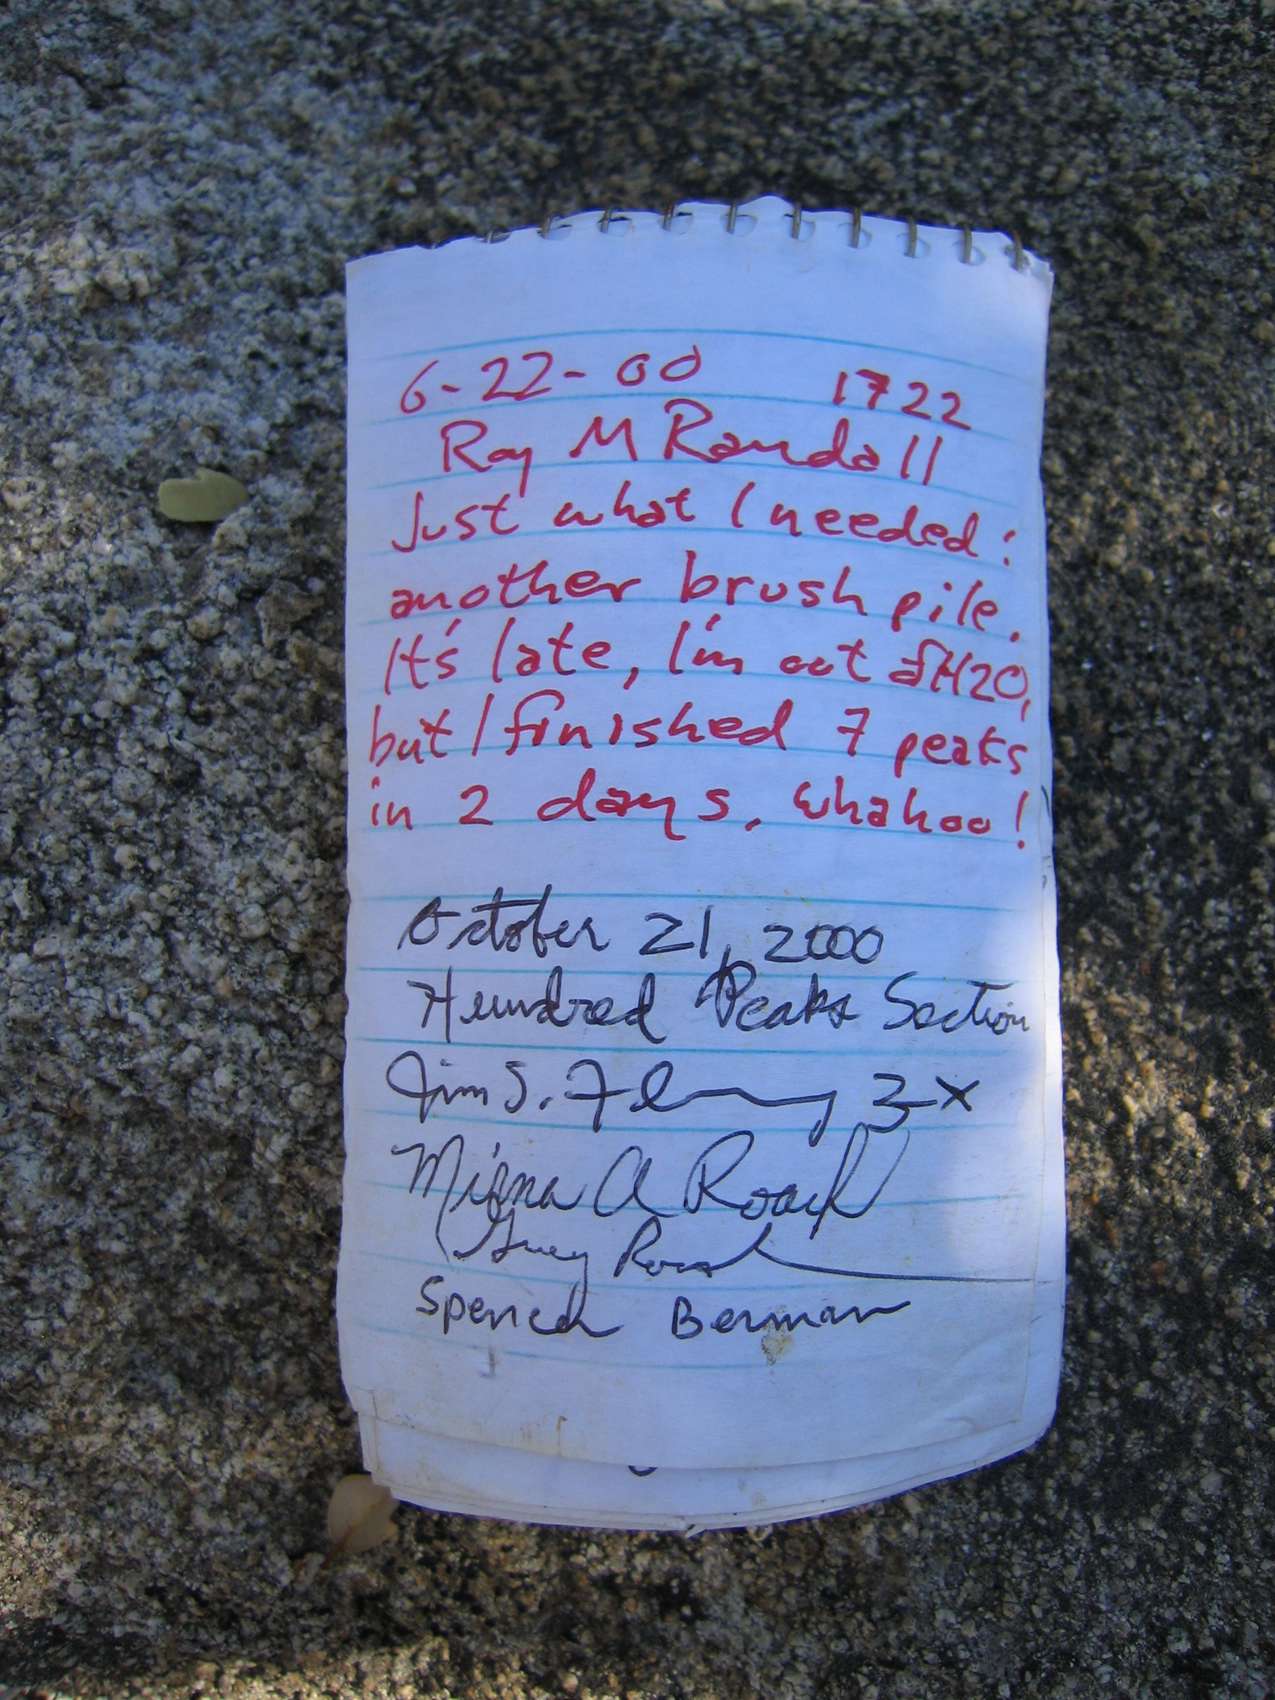 6-22-00 1722
Ray M Randall
Just what I needed:
another brush pile.
It's late, I'm out of H2O,
but I finished 7 peaks
in 2 days, whahoo!
October 21, 2000
Hundred Peaks Section
Jim S. Fleming 3X
A Roach
Roach
Spencer Berman